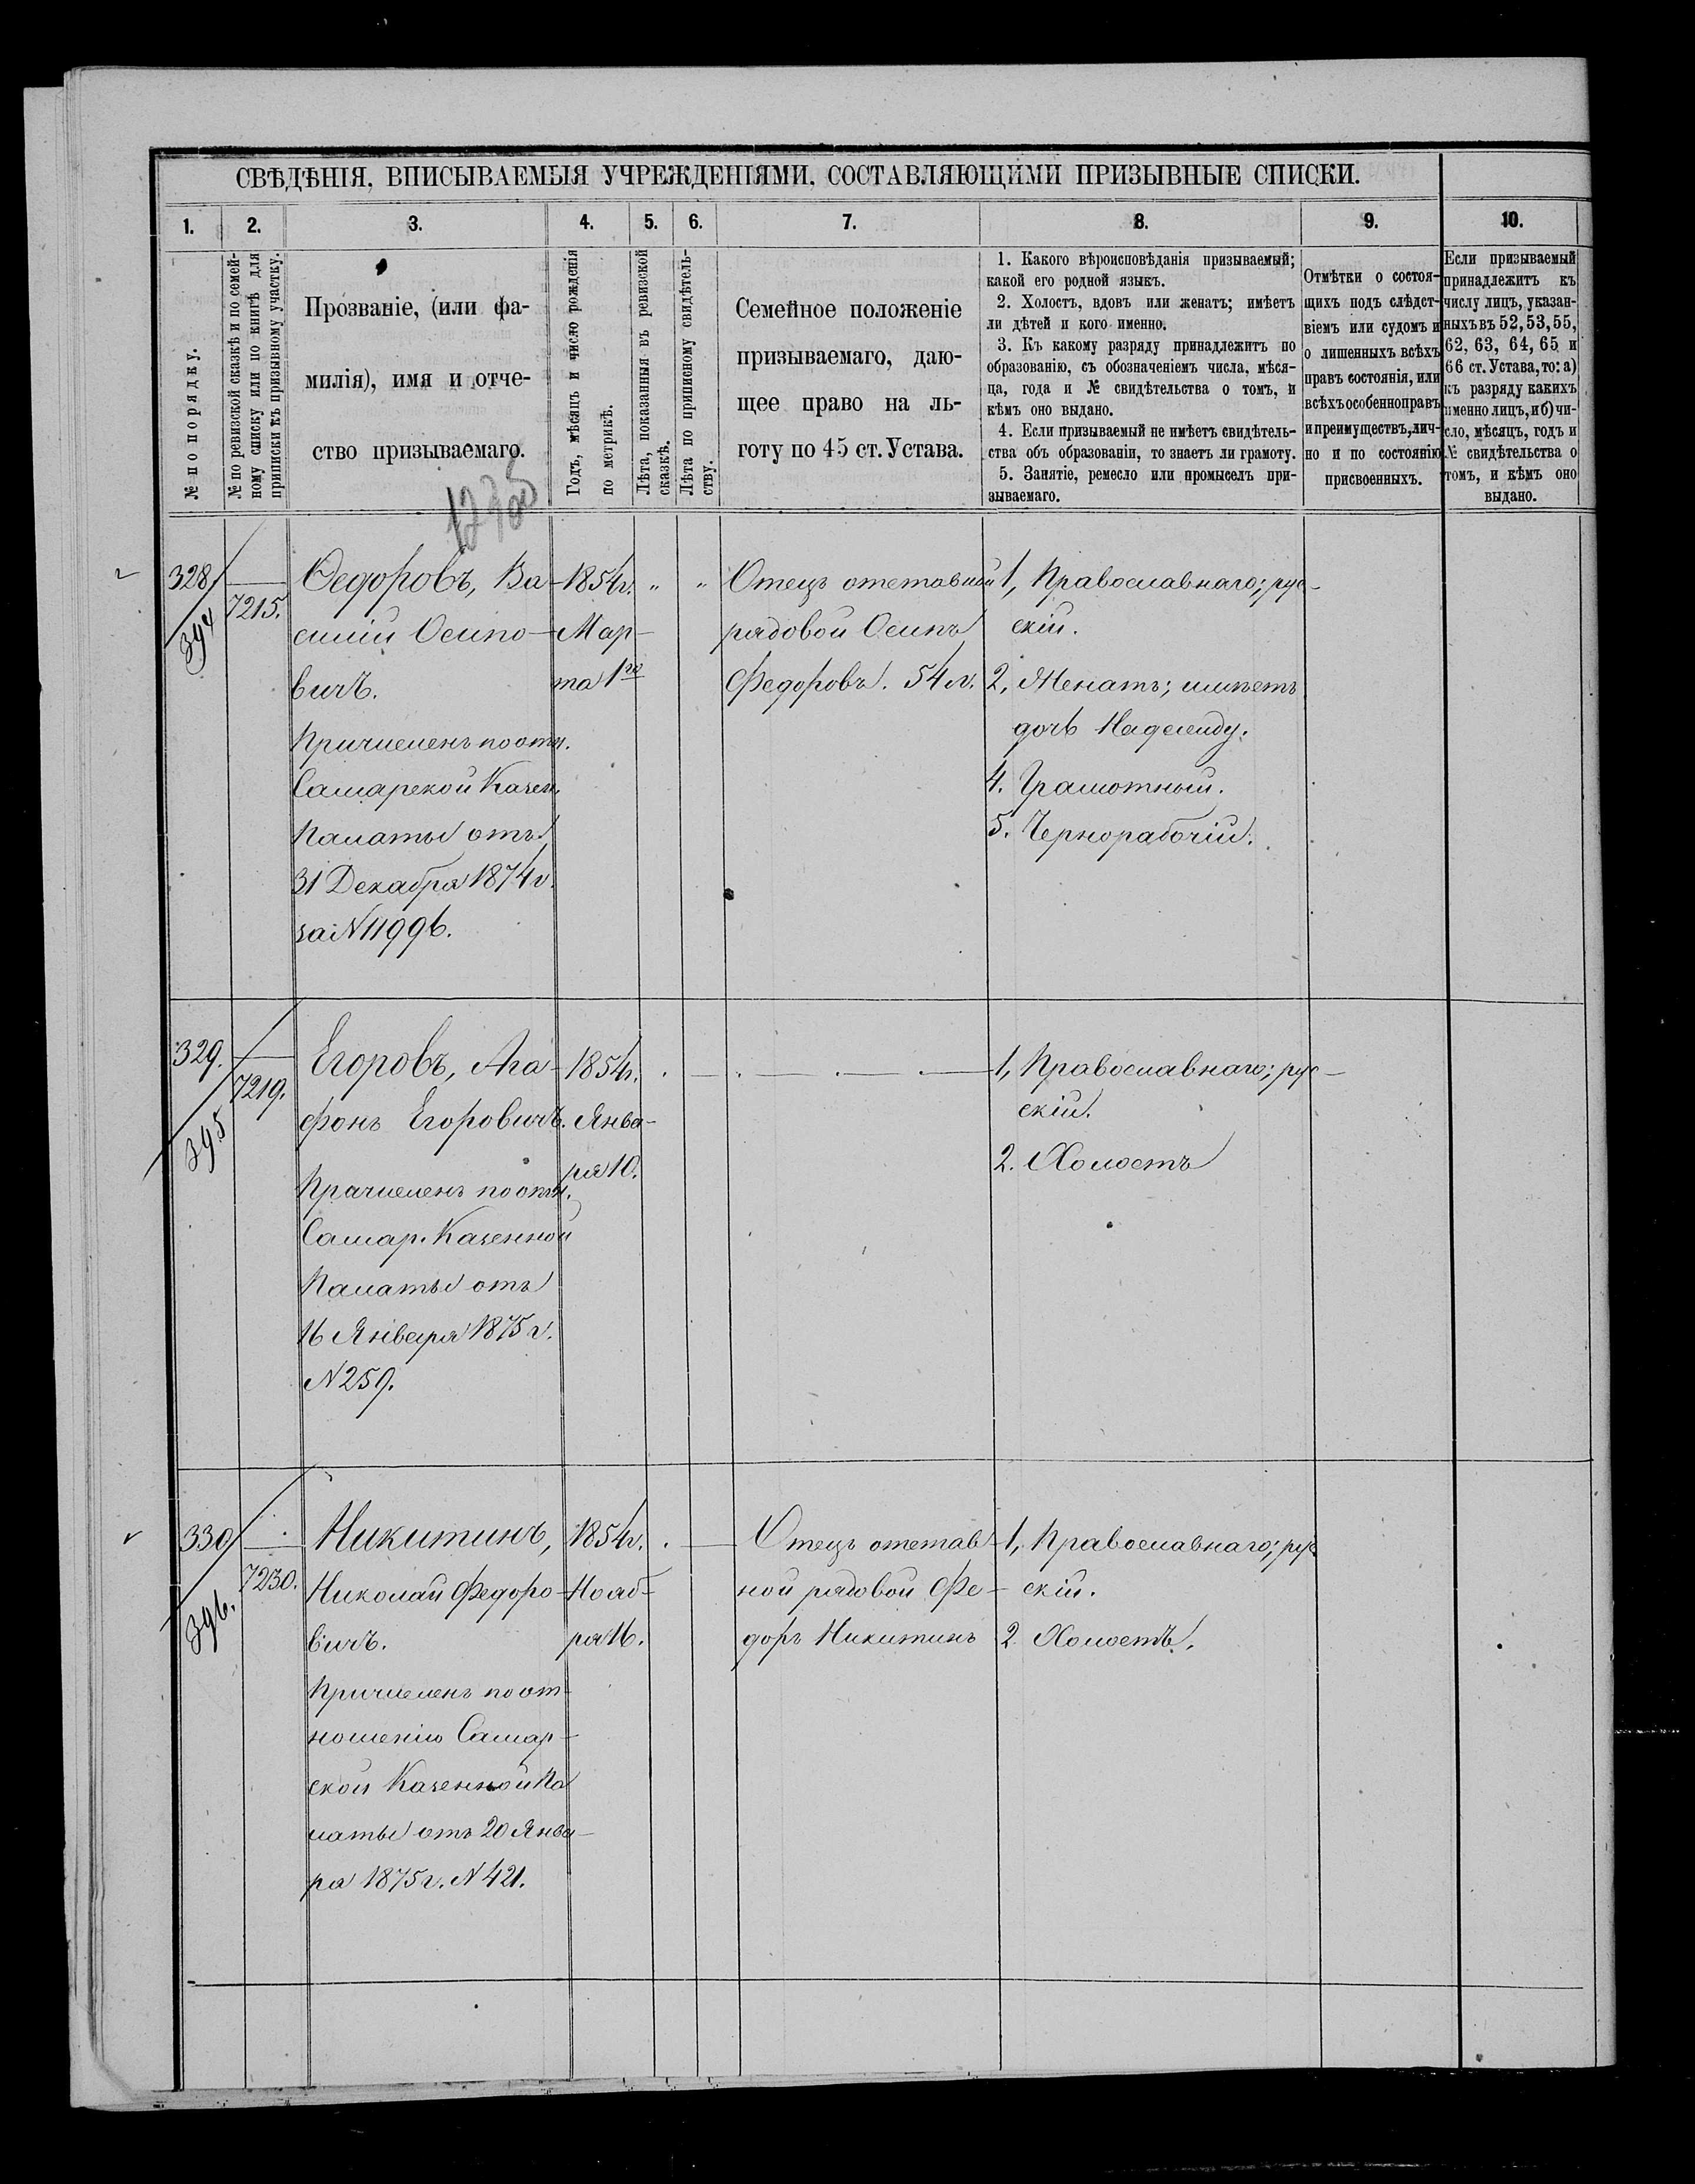 СВѢДѢНІЯ, ВПИСЫВАЕМЫЯ УЧРЕЖДЕНІЯМИ, СОСТАВЛЯЮЩИМИ ПРИЗЫВНЫЕ СПИСКИ.
1. 2. 3. 4. 5. 6. 7. 8. 9. 10.
№ по порядку.
№ по ревизской сказкѣ и по семей-
ному списку или по книгѣ для
приписки къ призывному участку.
Прозваніе, (или фа-
милія), имя и отче-
ство призываемаго.
Годъ, мѣсяцъ и число рожденія
по метрикѣ.
Лѣта, показанныя въ ревизской
сказкѣ.
Лѣта по приписному свидѣтель-
ству.
Семейное положеніе
призываемаго, даю-
щее право на ль-
готу по 45 ст. Устава.
1. Какого вѣроисповѣданія призываемый;
какой его родной языкъ.
2. Холостъ, вдовъ или женатъ; имѣетъ
ли дѣтей и кого именно.
3. Къ какому разряду принадлежитъ по
образованію, съ обозначеніемъ числа, мѣся-
ца, года и № свидѣтельства о томъ, и
кѣмъ оно выдано.
4. Если призываемый не имѣетъ свидѣтель-
ства объ образованіи, то знаетъ ли грамоту.
5. Занятіе, ремесло или промыселъ при-
зываемаго.
Отмѣтки о состоя-
щихъ подъ слѣдст-
віемъ или судомъ и
о лишенныхъ всѣхъ
правъ состоянія, или
всѣхъ особенно правъ
и преимуществъ, лич-
но и по состоянію
присвоенныхъ.
Если призываемый
принадлежитъ къ
числу лицъ, указан-
ныхъ въ 52, 53, 55,
62, 63, 64, 65 и
66 ст. Устава, то: а)
къ разряду какихъ
именно лицъ, и б) чи-
сло, мѣсяцъ, годъ и
№ свидѣтельства о
томъ, и кѣмъ оно
выдано.
328
394
7215.
Ѳедоровъ, Ва-
силій Осипо-
вичъ.
Причисленъ по отн.
Самарской Казен.
Палаты отъ
31 Декабря 1874 г.
за N 11996.
1854 г.
Мар-
та 1го
" "
Отецъ отставной
рядовой Осипъ
Федоровъ. 54 л.
1, Православнаго; рус-
скій.
2, Женатъ; имѣетъ
дочь
4. Грамотный.
5. Чернорабочій.
329.
395
7219.
Егоровъ, Ага-
фонъ Егоровичъ.
Причисленъ по отн.
Самар. Казенной
Палаты отъ
16 Января 1875 г.
N 259.
1854 г.
Янва-
ря 10.
1, Православнаго; рус-
скій.
2. Холостъ
330
396.
7230.
Никитинъ,
Николай Федоро-
вичъ.
Причисленъ по от-
ношенію Самар-
ской Казенной Па
латы отъ 20 Янва-
ря 1875 г. N 421.
1854 г.
Нояб-
ря 16.
Отецъ отстав-
ной рядовой Фе-
доръ Никитинъ
1, Православнаго; рус
скій.
2. Холостъ.